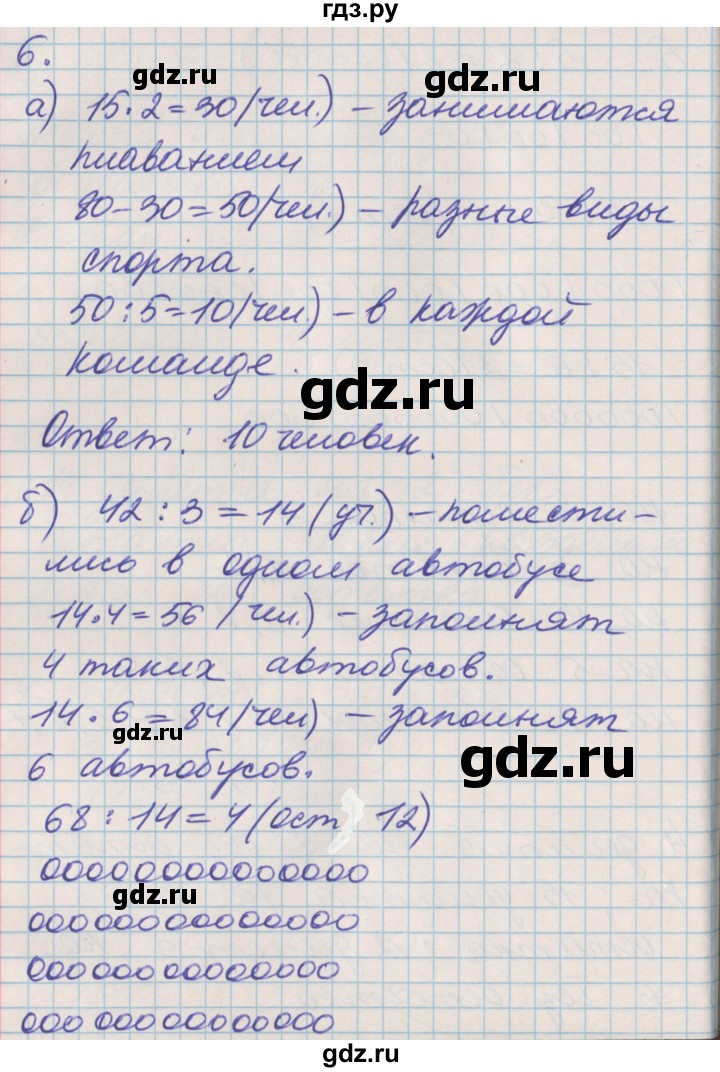 гдз.ру
6.
gdz.ru
gdz.ru
а) 15·2=30(чел.) – занимаются
плаванием
80-30=50(чел.) – разные виды
спорта.
50:5=10(чел.) – в каждой
команде.
gdz.ru
Ответ: 10 человек.
б) 42 : 3 = 14 (уч.) – помести-
лись в одном автобусе
14·4=56 (чел.) – заполнят
4 таких автобусов.
14·6=84(чел) – заполнят
gdz.ru
gdz.ru
6 автобусов.
68 : 14 = 4 (ост, 12)
00000000000000
gdz.ru
00000000000000
00000000000000
00000000000000
gdz.ru